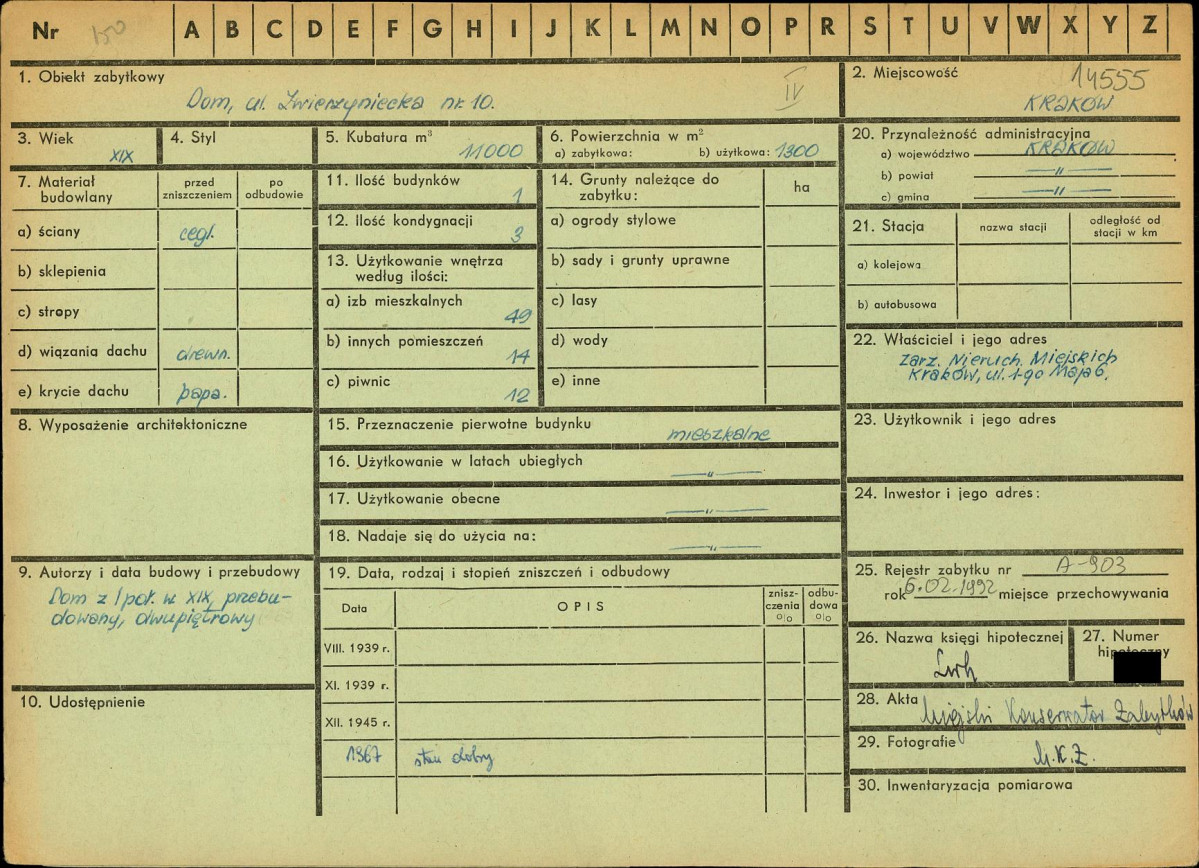 Nr 150 A B C D E F G H I J K L M N O P R S T U V W X Y Z
1. Obiekt zabytkowy
Dom, ul. Zwierzyniecka nr 10.
IV
2. Miejscowość
14555
KRAKÓW
3. Wiek
XIX
4. Styl
5. Kubatura m³
11000
6. Powierzchnia w m²
a) zabytkowa: b) użytkowa: 1300
20. Przynależność administracyjna
a) województwo KRAKÓW
b) powiat —„—
c) gmina —„—
7. Materiał budowlany
przed zniszczeniem
po odbudowie
a) ściany cegl.
b) sklepienia
c) stropy
d) wiązania dachu drewn.
e) krycie dachu papa.
11. Ilość budynków
1
12. Ilość kondygnacji
3
13. Użytkowanie wnętrza
według ilości:
a) izb mieszkalnych
49
b) innych pomieszczeń
14
c) piwnic
12
14. Grunty należące do
zabytku:
ha
a) ogrody stylowe
b) sady i grunty uprawne
c) lasy
d) wody
e) inne
21. Stacja
nazwa stacji
odległość od
stacji w km
a) kolejowa
b) autobusowa
22. Właściciel i jego adres
Zarz. Nieruch. Miejskich
Kraków, ul. 1-go Maja 6.
8. Wyposażenie architektoniczne
15. Przeznaczenie pierwotne budynku
mieszkalne
16. Użytkowanie w latach ubiegłych
—„—
17. Użytkowanie obecne
—„—
18. Nadaje się do użycia na:
—„—
23. Użytkownik i jego adres
24. Inwestor i jego adres:
9. Autorzy i data budowy i przebudowy
Dom z I poł. w XIX, przebu-
dowany, dwupiętrowy
19. Data, rodzaj i stopień zniszczeń i odbudowy
Data
OPIS
znisz-
czenia
%
odbu-
dowa
%
VIII. 1939 r.
XI. 1939 r.
XII. 1945 r.
1967 stan dobry
25. Rejestr zabytku nr A-903
rok 6.02.1992 miejsce przechowywania
26. Nazwa księgi hipotecznej
Lwh
27. Numer
hipoteczny
10. Udostępnienie
28. Akta
Miejski Konserwator Zabytków
29. Fotografie
M.K.Z.
30. Inwentaryzacja pomiarowa